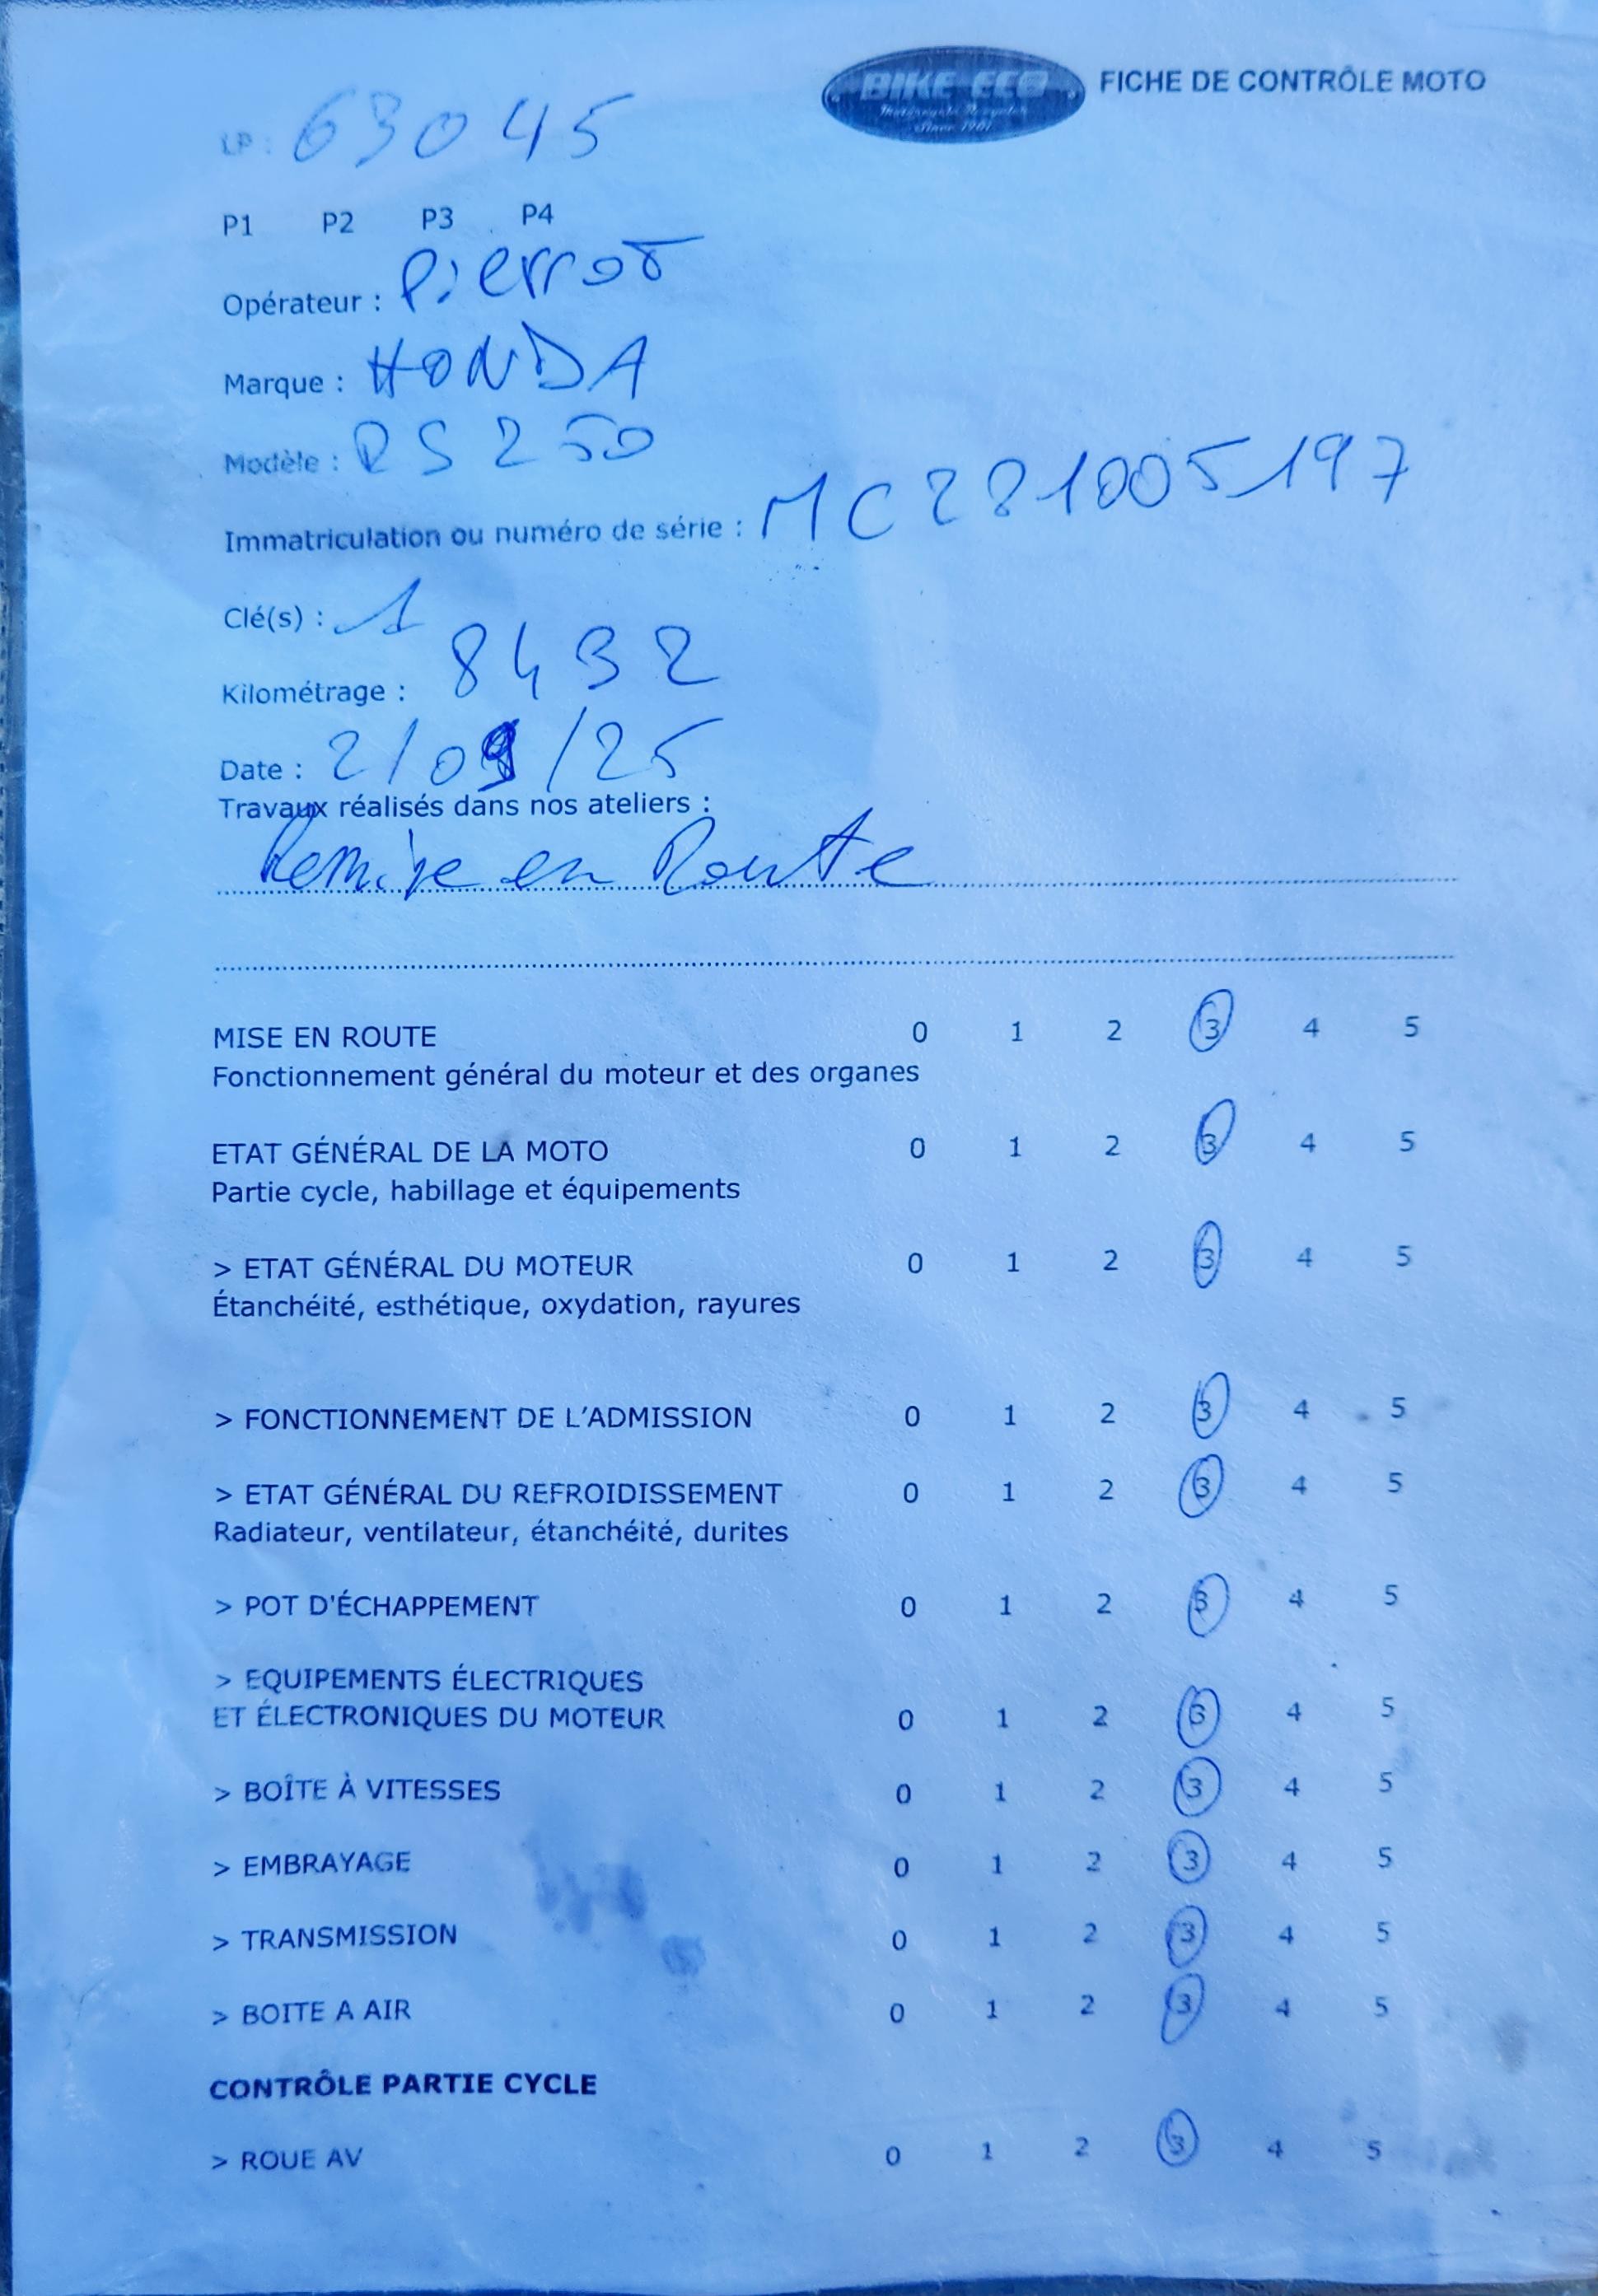 BIKE ECO
Since 1987
FICHE DE CONTRÔLE MOTO
LP : 63045
P1 P2 P3 P4
Opérateur : Pierrot
Marque : HONDA
Modèle : RS 250
Immatriculation ou numéro de série : MC281005197
Clé(s) : 1
Kilométrage : 8432
Date : 2/09/25
Travaux réalisés dans nos ateliers :
Remise en Route
MISE EN ROUTE 0 1 2 3 4 5
Fonctionnement général du moteur et des organes
ETAT GÉNÉRAL DE LA MOTO 0 1 2 3 4 5
Partie cycle, habillage et équipements
> ETAT GÉNÉRAL DU MOTEUR 0 1 2 3 4 5
Étanchéité, esthétique, oxydation, rayures
> FONCTIONNEMENT DE L'ADMISSION 0 1 2 3 4 5
> ETAT GÉNÉRAL DU REFROIDISSEMENT 0 1 2 3 4 5
Radiateur, ventilateur, étanchéité, durites
> POT D'ÉCHAPPEMENT 0 1 2 3 4 5
> EQUIPEMENTS ÉLECTRIQUES
ET ÉLECTRONIQUES DU MOTEUR 0 1 2 3 4 5
> BOÎTE À VITESSES 0 1 2 3 4 5
> EMBRAYAGE 0 1 2 3 4 5
> TRANSMISSION 0 1 2 3 4 5
> BOITE A AIR 0 1 2 3 4 5
CONTRÔLE PARTIE CYCLE
> ROUE AV 0 1 2 3 4 5